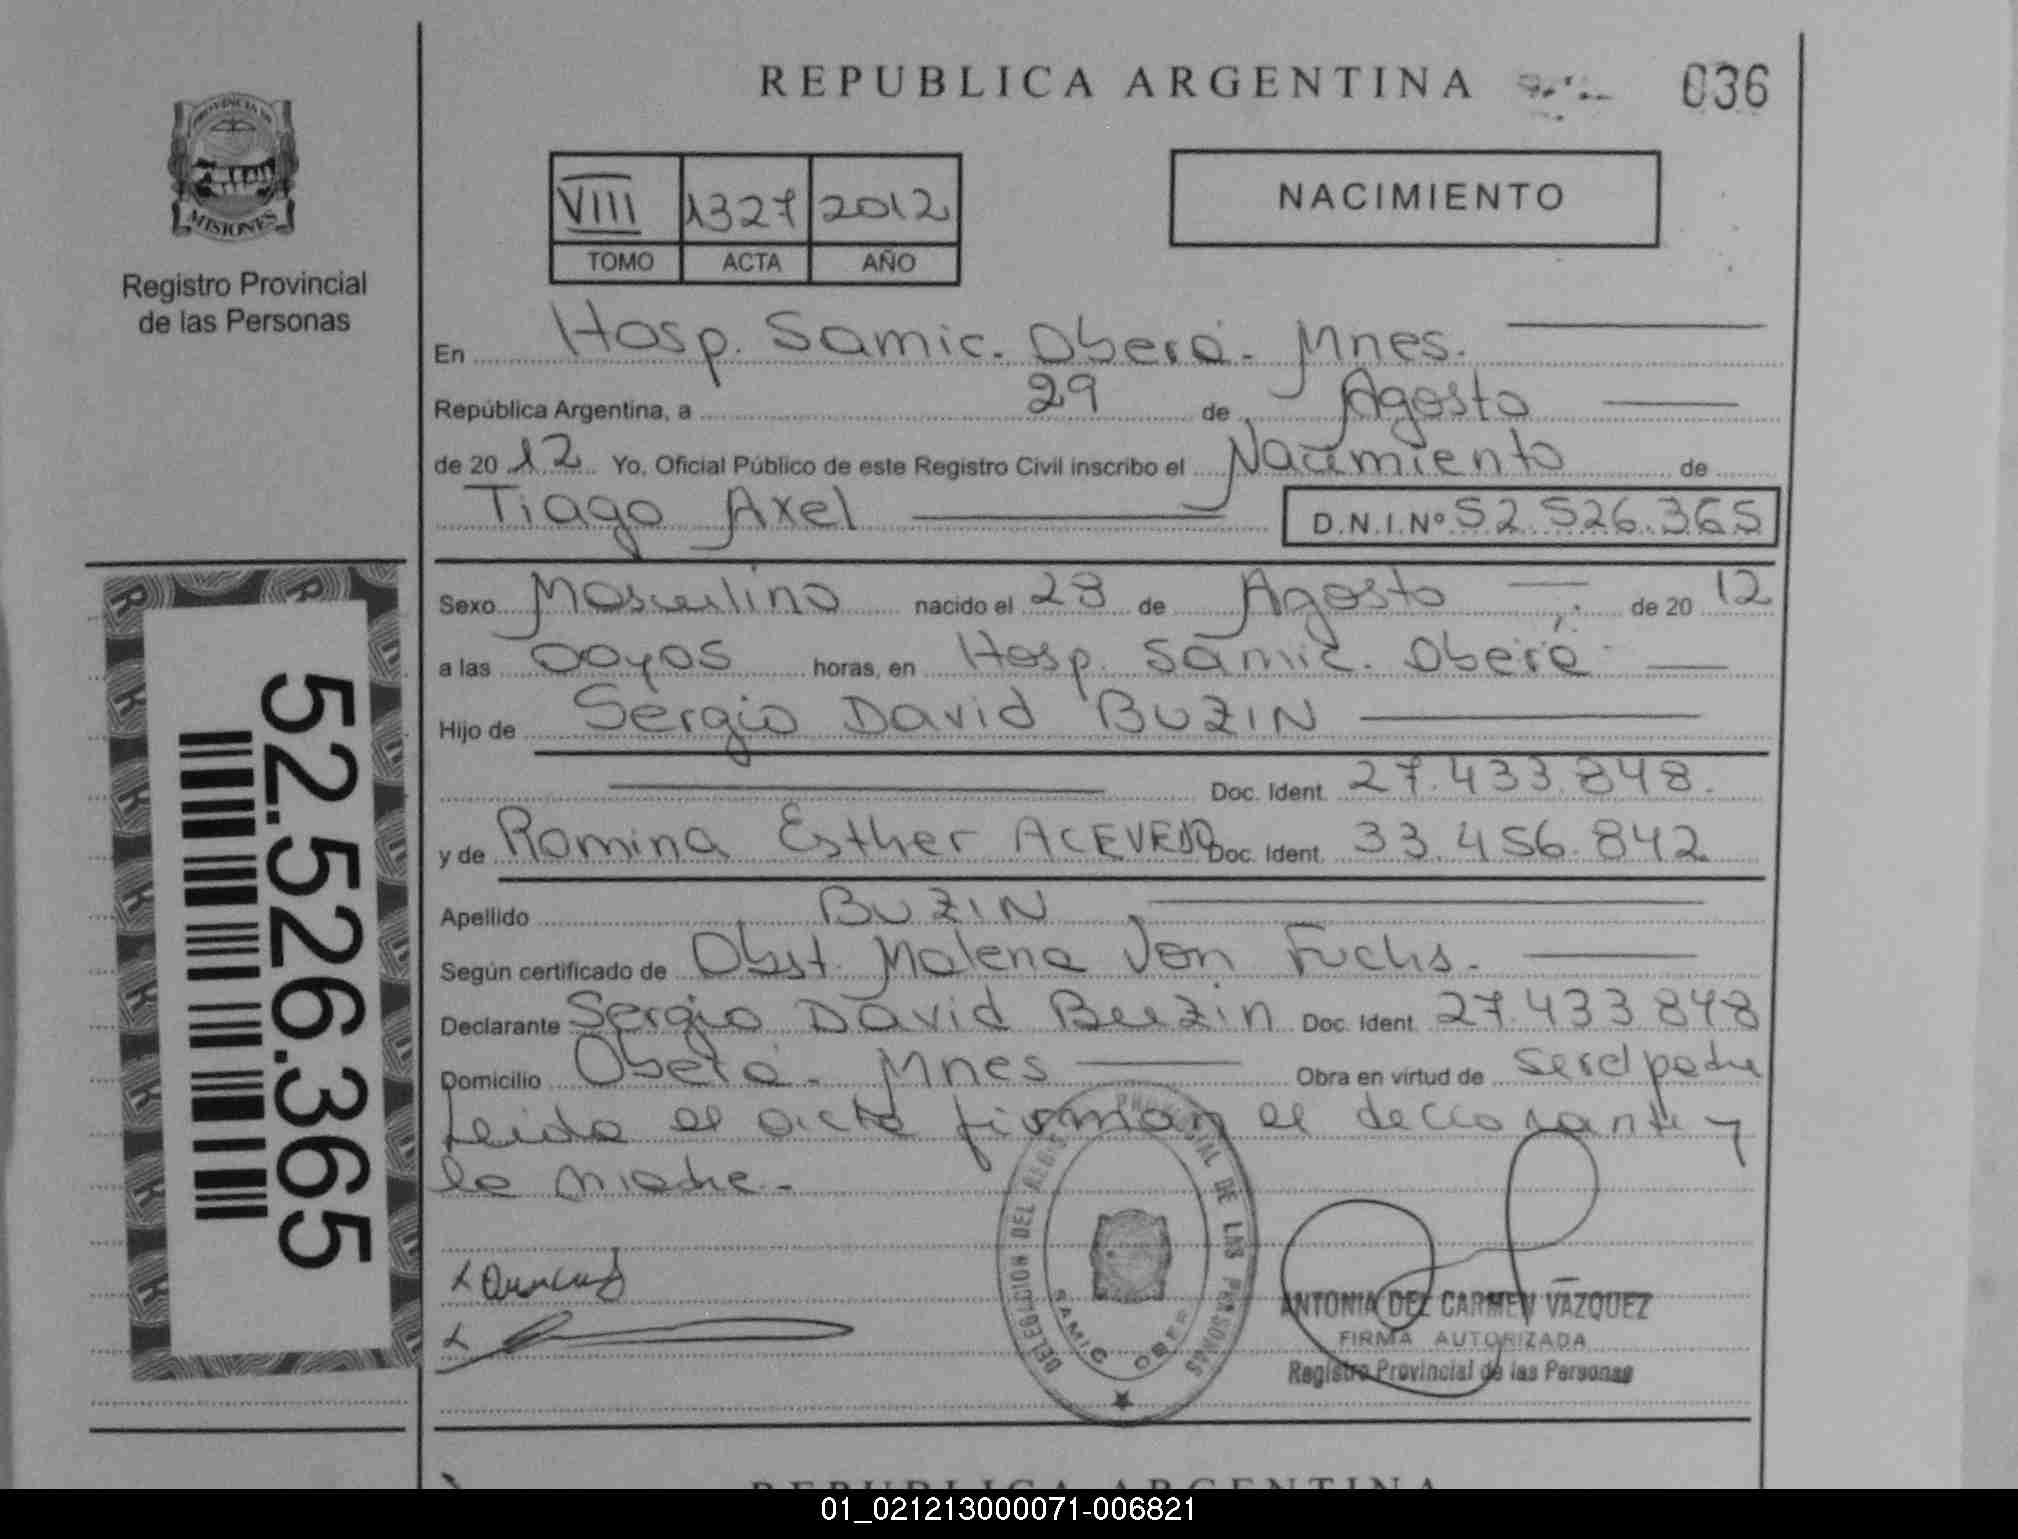 REPUBLICA ARGENTINA 036
PROVINCIA DE
MISIONES
Registro Provincial
de las Personas
VIII 1327 2012
TOMO ACTA AÑO
NACIMIENTO
En Hosp. Samic. Oberá. Mnes.
República Argentina, a 29 de Agosto
de 20 12 Yo, Oficial Público de este Registro Civil inscribo el Nacimiento de
Tiago Axel D.N.I.Nº 52.526.365
Sexo Masculino nacido el 28 de Agosto de 20 12
a las 00y05 horas, en Hosp. Samic. Oberá
Hijo de Sergio David BUZIN
Doc. Ident. 27.433.848.
y de Romina Esther ACEVEDO Doc. Ident. 33.456.842
Apellido BUZIN
Según certificado de Obst. Malena Von Fuchs.
Declarante Sergio David Buzin Doc. Ident. 27.433.848
Domicilio Oberá. Mnes Obra en virtud de ser el padre
Leída el acta firman el declarante y
la madre.
52.526.365
DELEGACION DEL PROVINCIAL DE LAS PERSONAS
SAMIC OBERA
ANTONIA DEL CARMEN VAZQUEZ
FIRMA AUTORIZADA
Registro Provincial de las Personas
REPUBLICA ARGENTINA
01_021213000071-006821